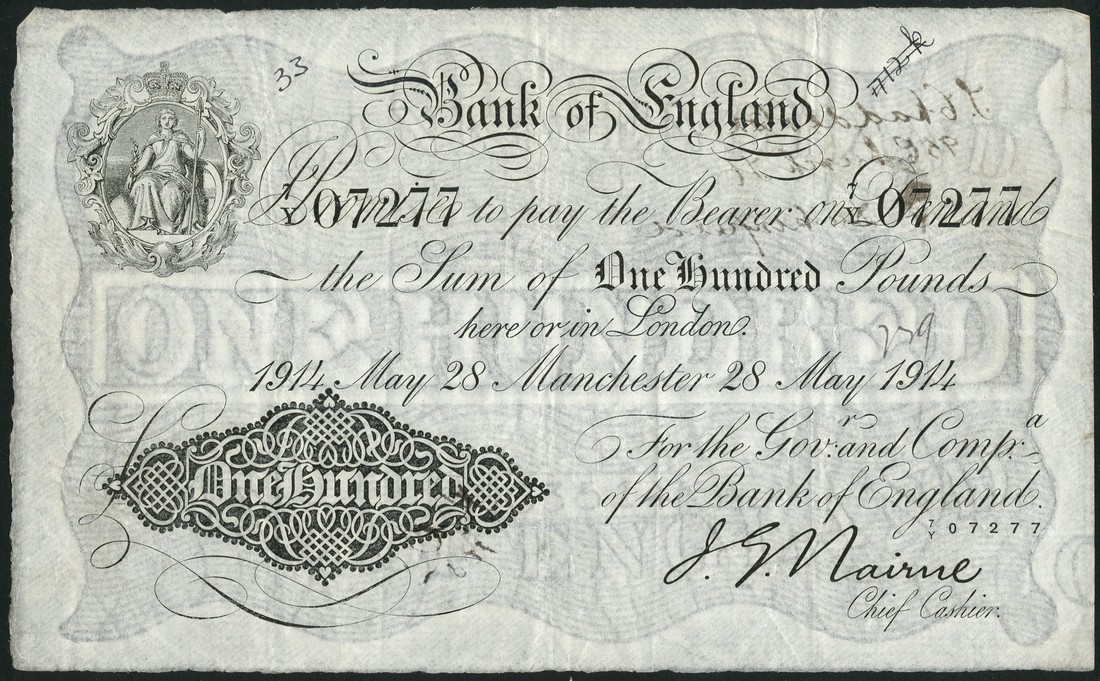 33
Bank of England
I Promise to pay the Bearer on Demand
7/Y 07277 7/Y 07277
the Sum of One Hundred Pounds
here or in London.
1914 May 28 Manchester 28 May 1914
For the Gov:r and Comp:a
of the Bank of England.
7/Y 07277
One Hundred
J. G. Nairne
Chief Cashier.
ONE HUNDRED